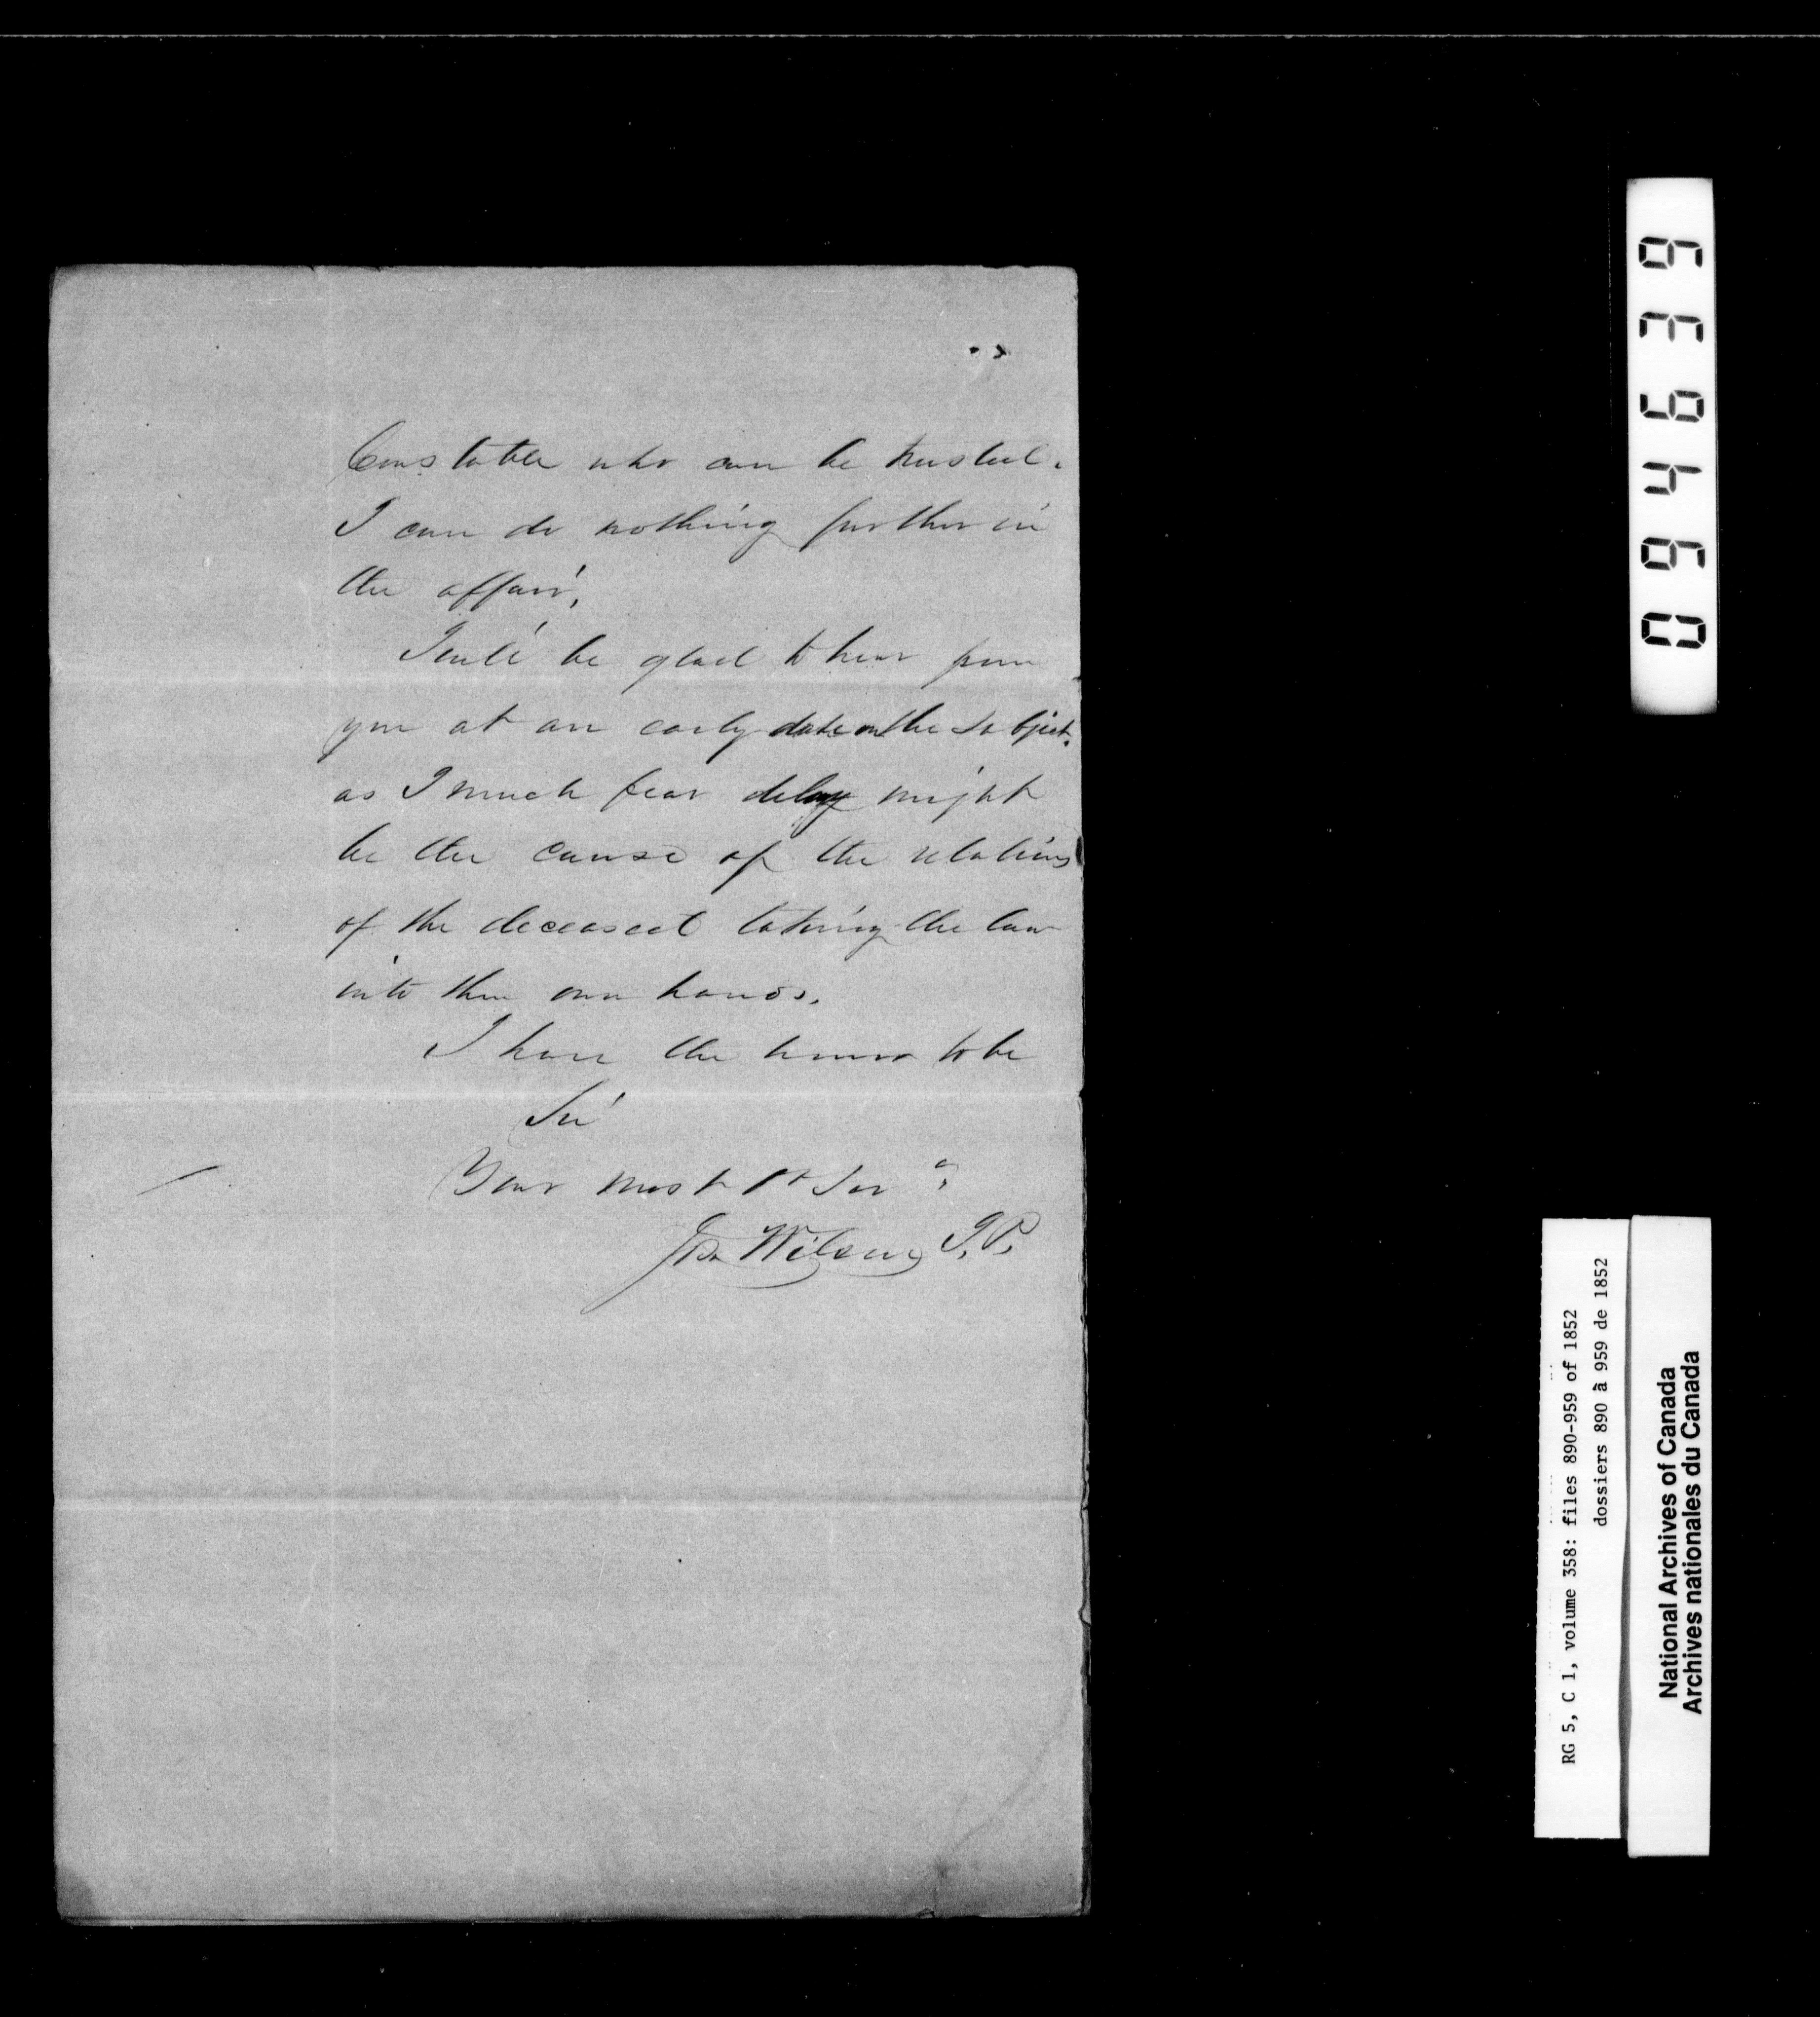 Constable who can be trusted.
I can do nothing further in
the affair,
I will be glad to hear from
you at an early date on the subject.
as I much fear delay might
be the cause of the relations
of the deceased taking the law
into their own hands.
I have the honor to be
Sir
Your most Ot Ser
Wilson J.P.
094639
RG 5, C 1, volume 358: files 890-959 of 1852
dossiers 890 à 959 de 1852
National Archives of Canada
Archives nationales du Canada